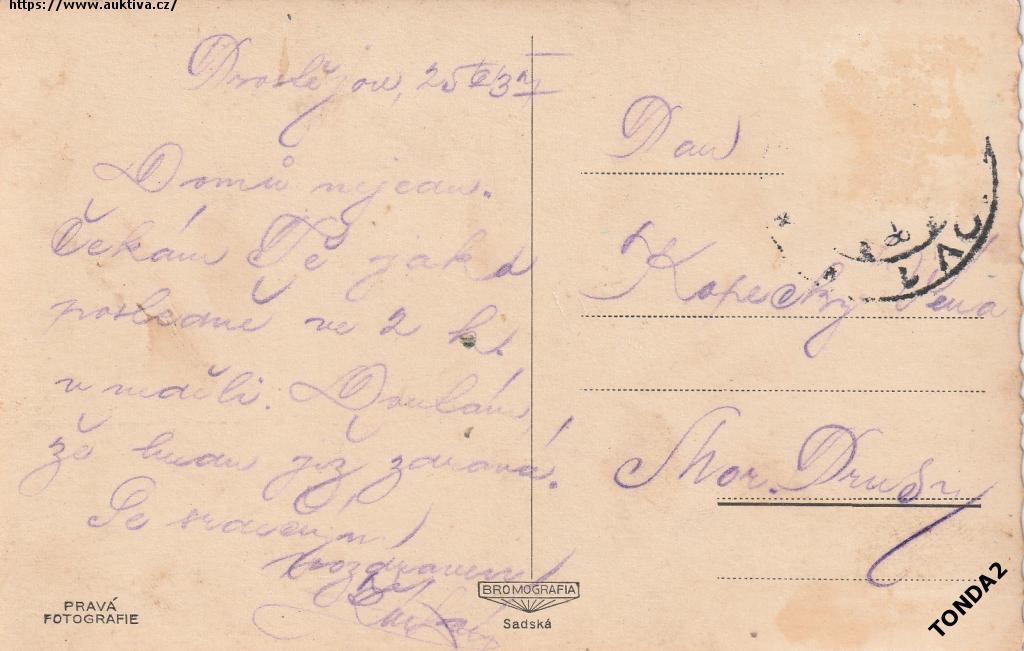 https://www.auktiva.cz/
Prostějov, 25
Domů nejedu.
Čekám Tě jako
posledně ve 2 h.
v neděli. Doufám,
že budu již zdravá.
Se srdečným
pozdravem
Pan
Kopecký
Mor. Prusy
PRAVÁ
FOTOGRAFIE
BROMOGRAFIA
Sadská
TONDA2